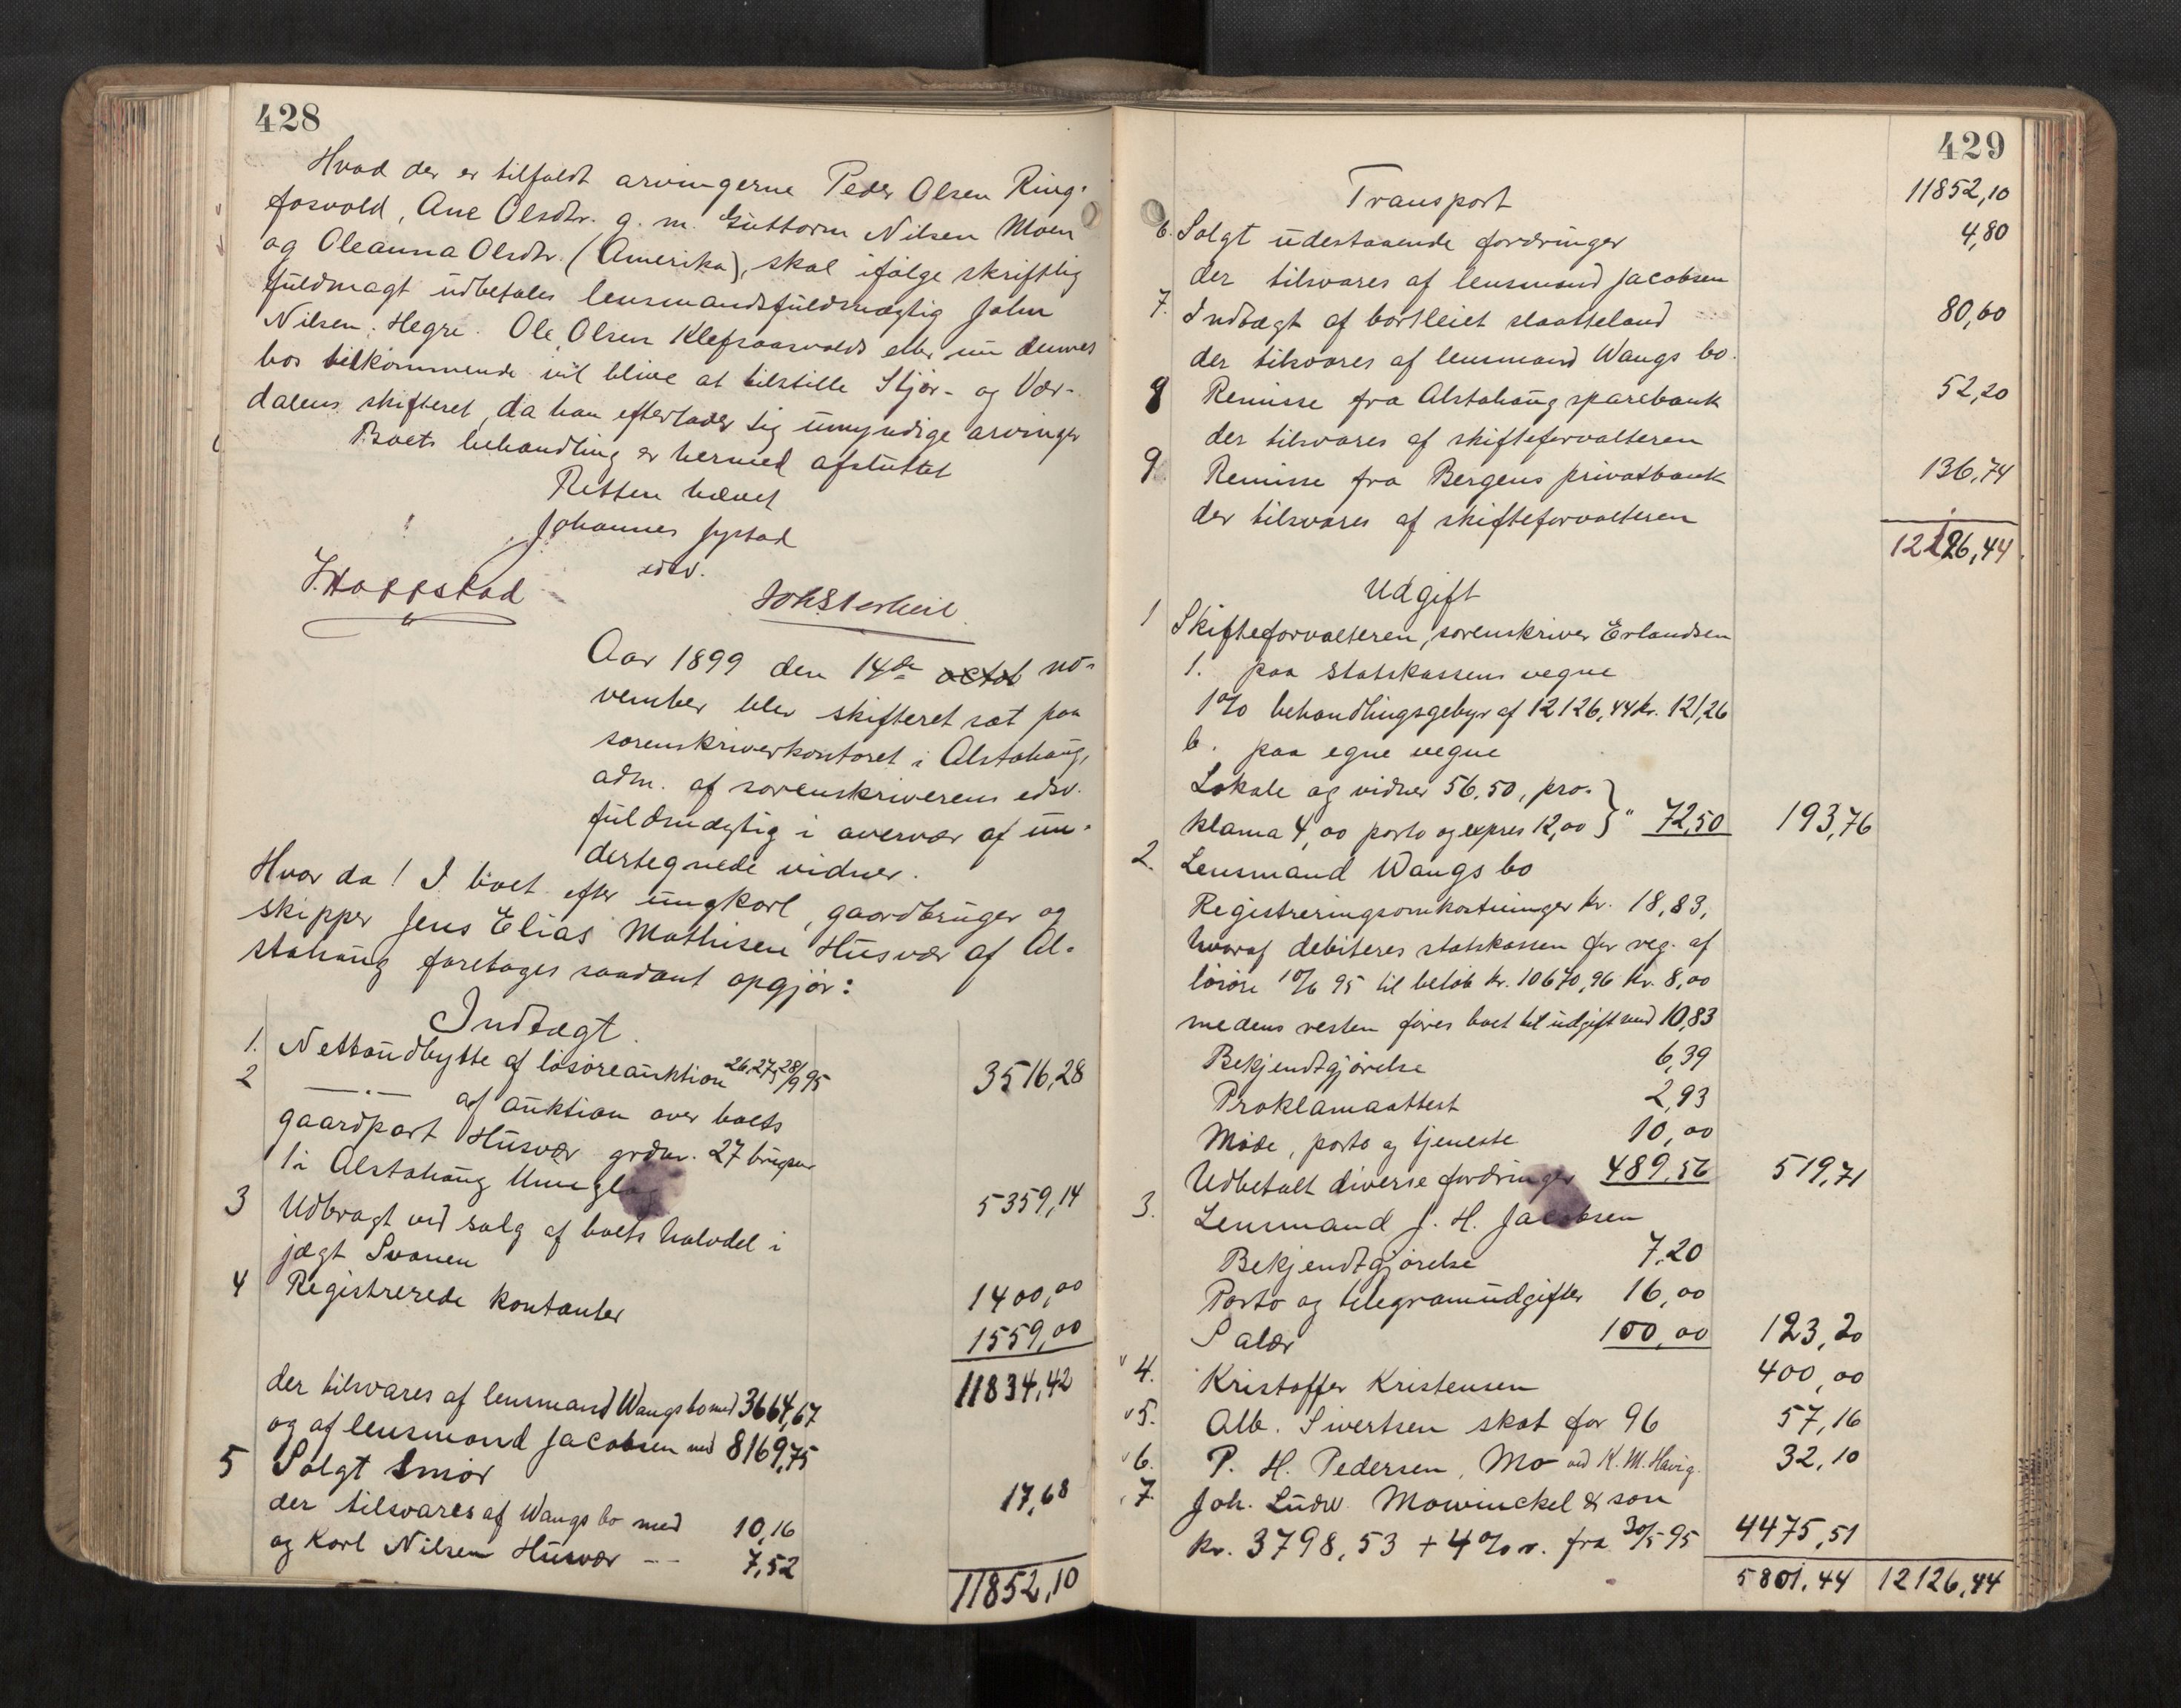 428
Hvad der er tilfaldt arvingerne Peder Olsen Ring-
fosvold, Ane Olsdtr. g. m. Guttorm Nilsen Moen
og Oleanna Olsdtr. (Amerika), skal ifølge skriftlig
fuldmagt udbetales lensmandsfuldmægtig John
Nilsen, Hegre. Ole Olsen Klefsaasvolds eller nu dennes
bos vedkommende vil blive at tilstille Stjør- og Vær-
dalens skifteret, da han efterlader sig umyndige arvinger
Boets behandling er hermed afsluttet
Retten hævet
Johannes Jystad
edsv.
Aar 1899 den 14de octob no-
vember blev skifteret sat paa
sorenskriverkontoret i Alstahaug,
adm. af sorenskriverens edsv.
fuldmægtig i overvær af un-
dertegnede vidner.
Hvor da! I boet efter ungkarl, gaardbruger og
skipper Jens Elias Mathisen Husvær af Al-
stahaug foretages saadant opgjør:
Indtægt.
1. Nettoudbytte af løsøreauktion 26, 27, 28/9 95 3516,28
2 —"— af auktion over boets
gaardpart Husvær grdnr. 27 brugsnr
1 i Alstahaug thinglag 5359,14
3 Udbragt ved salg af boets halvdel i
jægt Svanen 1400,00
4 Registrerede kontanter 1559,00
11834,42
der tilsvares af lensmand Wangs bo med 3664,67
og af lensmand Jacobsen med 8169,75
5 Solgt smør 17,68
der tilsvares af Wangs bo med 10,16
og Karl Nilsen Husvær -- 7,52
11852,10
429
Transport 11852,10
6. Solgt udestaaende fordringer 4,80
der tilsvares af lensmand Jacobsen
7. Indtægt af bortleiet slaatteland 80,60
der tilsvares af lensmand Wangs bo.
8 Remisse fra Alstahaug sparebank 52,20
der tilsvares af skifteforvalteren
9 Remisse fra Bergens privatbank 136,74
der tilsvares af skifteforvalteren
12126,44
Udgift
1 Skifteforvalteren, sorenskriver Erlandsen
1. paa statskassens vegne
1% behandlingsgebyr af 12126,44 kr. 121,26
b. paa egne vegne
Lokale og vidner 56,50, pro-
klama 4,00 porto og expres 12,00 } " 72,50 193,76
2. Lensmand Wangs bo
Registreringsomkostninger kr. 18,83,
hvoraf debiteres statskassen for reg. af
løsøre 10/6 95 til beløb kr. 10670,96 kr. 8,00
medens resten føres boet til udgift med 10,83
Bekjendtgjørelse 6,39
Proklamaattest 2,93
Møde, porto og tjeneste 10,00
Udbetalt diverse fordringer 489,56 519,71
3. Lensmand J. H. Jacobsen
Bekjendtgjørelse 7,20
Porto og telegramudgifter 16,00
Salær 100,00 123,20
4. Kristoffer Kristensen 400,00
5. Alb. Sivertsen skat for 96 57,16
6. P. H. Pedersen, Mo ved K. M. Havig. 32,10
7 Joh. Ludw. Mowinckel & søn
kr. 3798,53 + 4% r. fra 30/5 95 4475,51
5801,44 12126,44